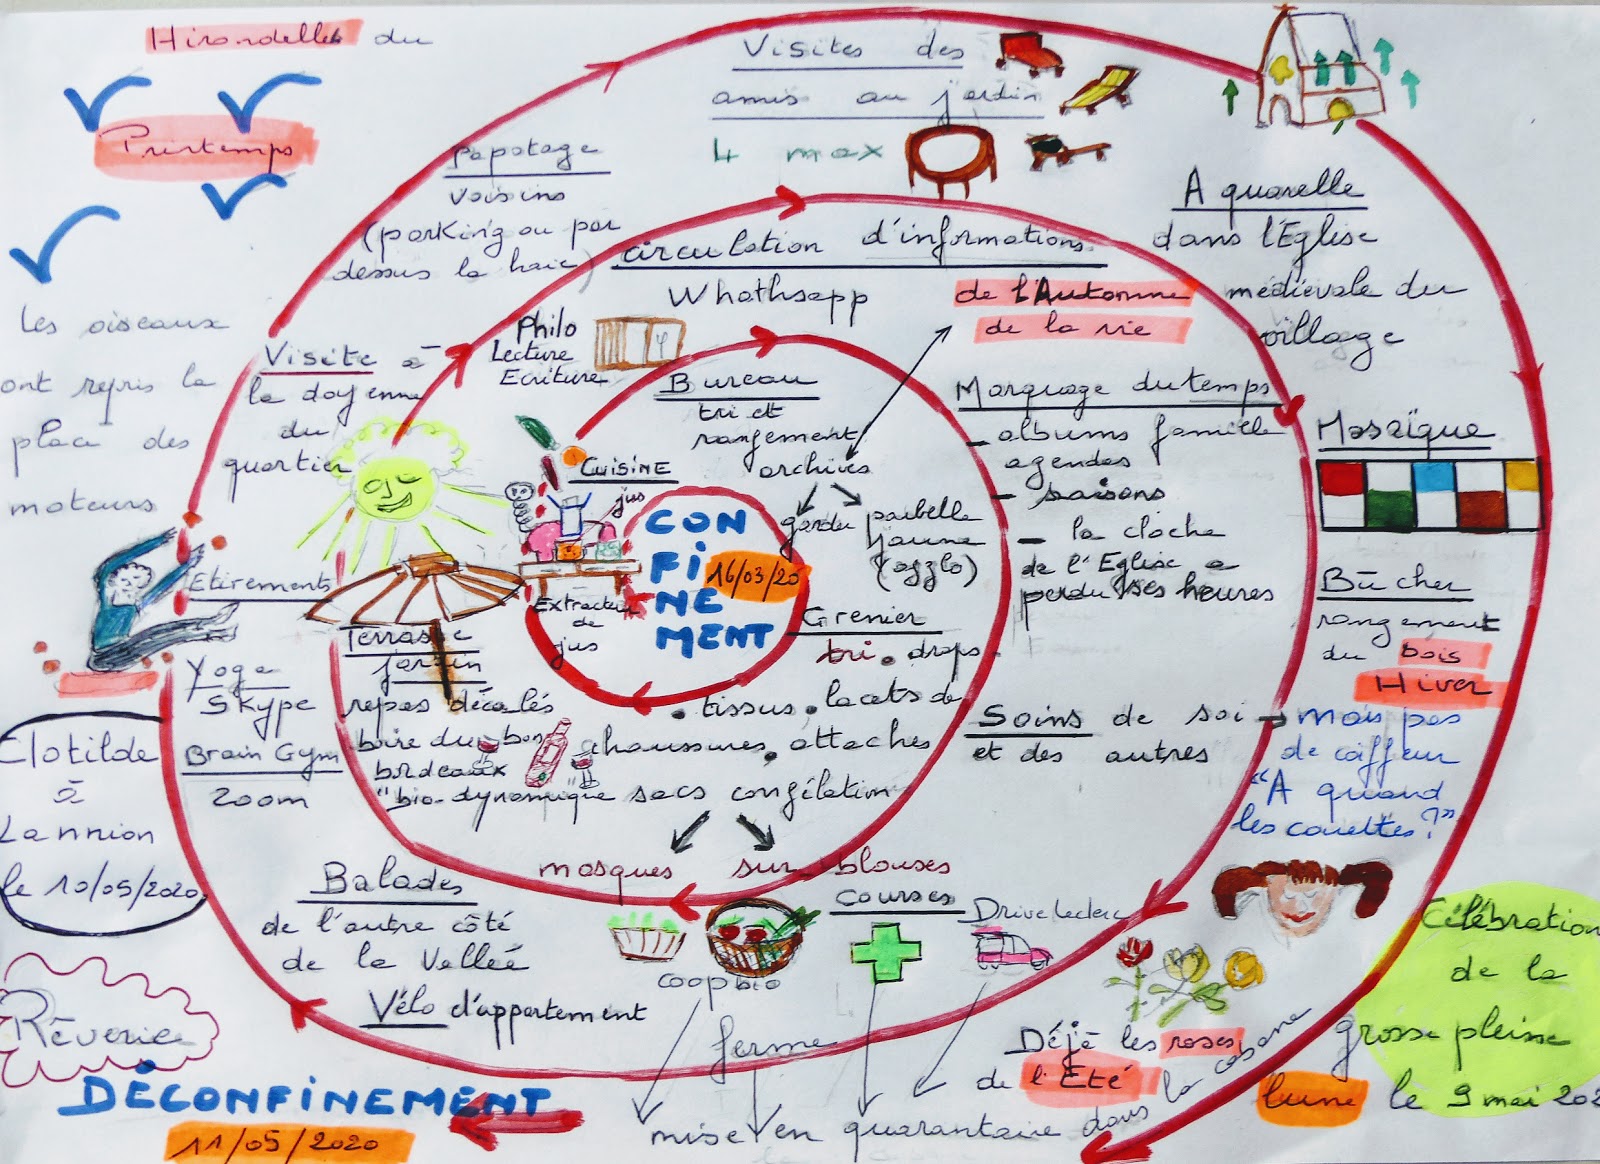 Hirondelles du
Printemps
Les oiseaux
ont repris la
place des
moteurs
Visites des
amis au jardin
4 max
Papotage
voisins
(parking ou par
dessus la haie)
Circulation d'informations
Whathsapp
de l'Automne
de la vie
Aquarelle
dans l'Eglise
médiévale du
village
Visite à
la doyenne
du
quartier
Philo
Lecture
Ecriture
Bureau
tri et
rangement
archives
garder
poubelle
jaune
(agglo)
Marquage du temps
- albums famille
agendas
- saisons
- la cloche
de l'Eglise a
perdu ses heures
Mosaïque
CUISINE
jus
Extracteur
de
jus
CON
FI
NE
MENT
16/03/20
Grenier
tri. draps
. tissus . lacets de
chaussures . attaches
sacs congélation
masques sur-blouses
Etirements
Yoga
Skype
Brain Gym
Zoom
Terrasse
Jardin
repas décalés
boire du bon
bordeaux
"bio-dynamique
Soins de soi
et des autres
→ mais pas
de coiffeur
"A quand
les couettes?"
Bûcher
rangement
du bois
Hiver
Clotilde
à
Lannion
le 10/05/2020
Balades
de l'autre côté
de la Vallée
Vélo d'appartement
Courses
Drive Leclerc
coop bio
ferme
mise en quarantaine dans la cabane
Déjà les roses
de l'Eté
Célébration
de la
grosse pleine
lune le 9 mai 202
Rêverie
DÉCONFINEMENT
11/05/2020